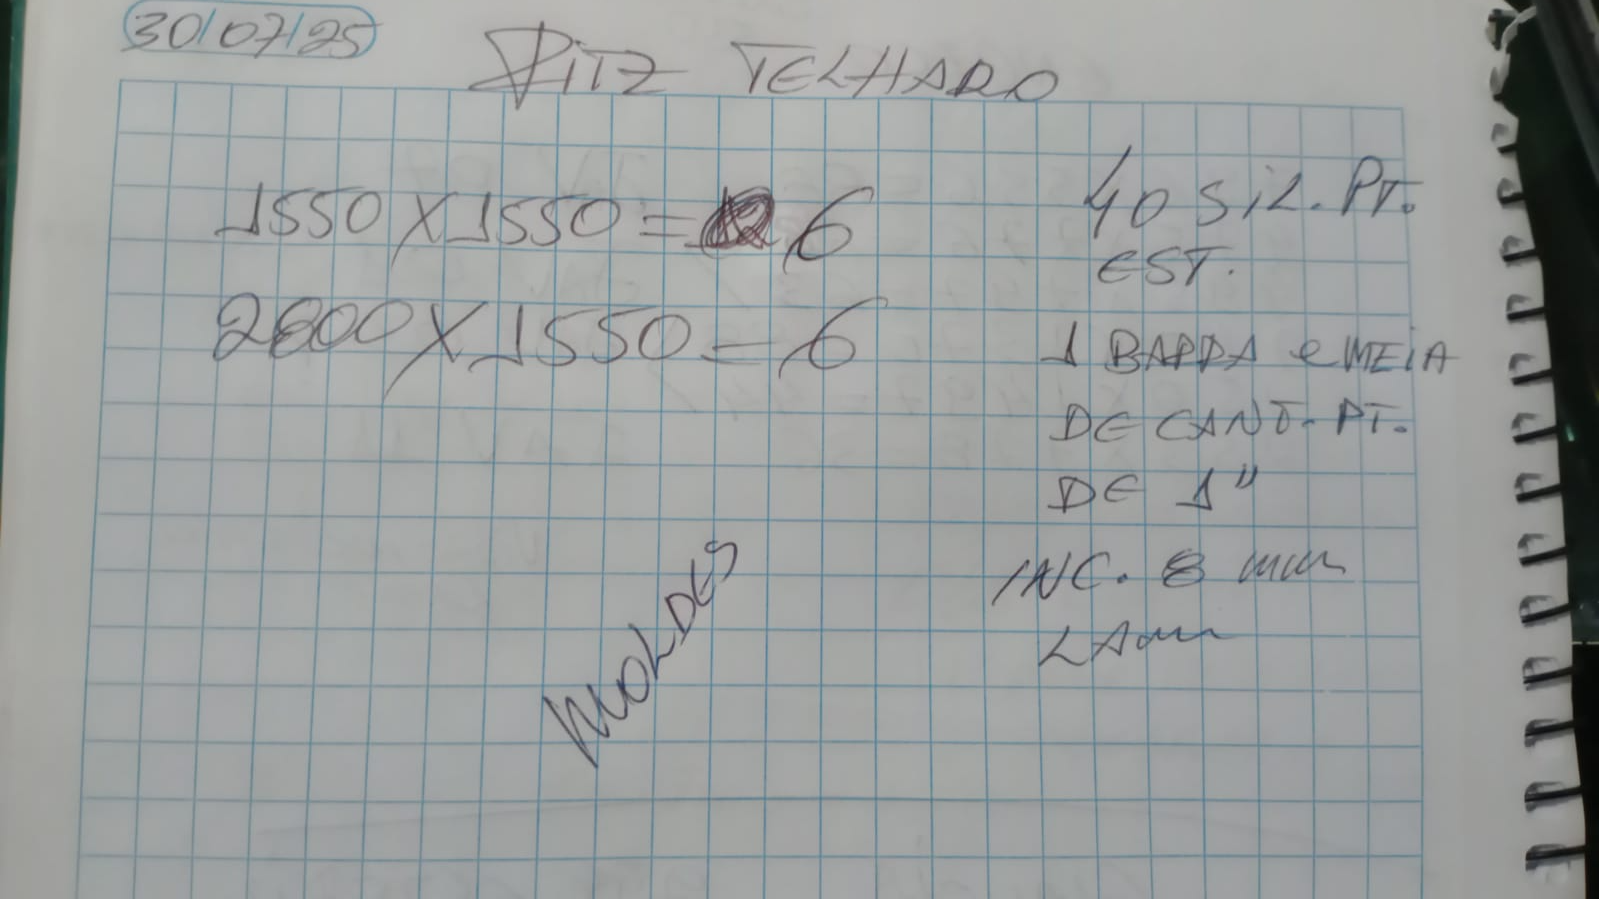 30/07/25
RITZ TELHADO
1550 X 1550 = 6
2800 X 1550 = 6
40 SIL. PT.
EST.
1 BARRA e MEIA
DE CANT. PT.
DE 1"
INC. 8 mm
LAM
MOLDES